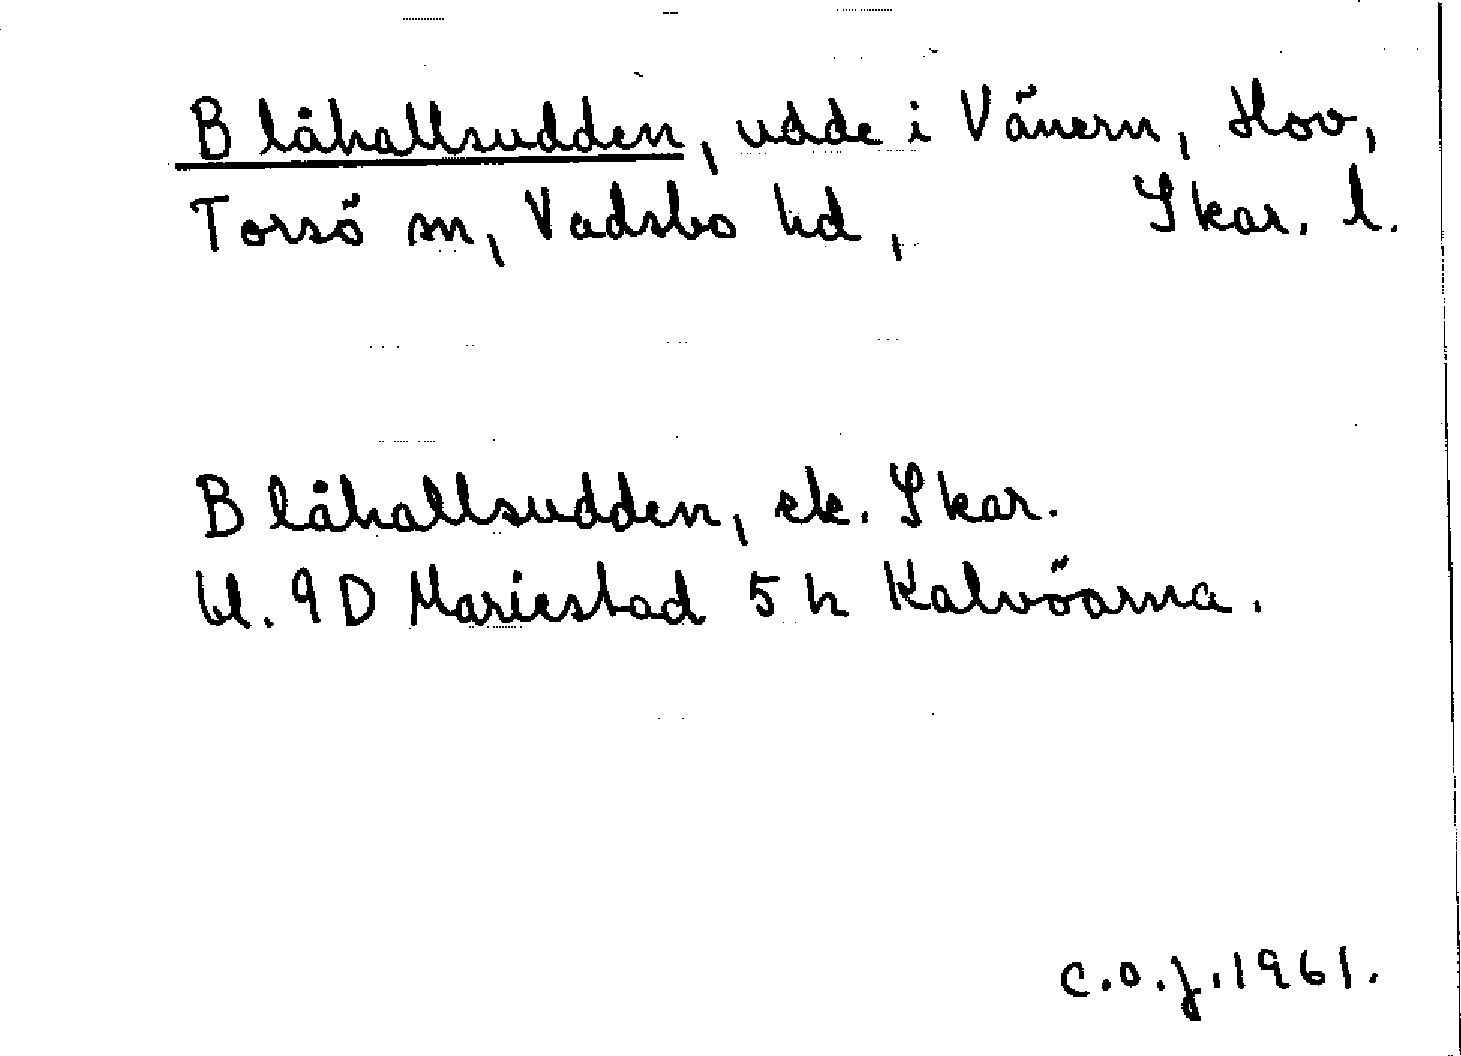 Blåhallsudden, udde i Vänern, Hov,
Torsö sn, Vadsbo hd, Skar. l.
Blåhallsudden, ek. Skar.
bl. 9D Mariestad 5h Kalvöarna.
C.O.J. 1961.